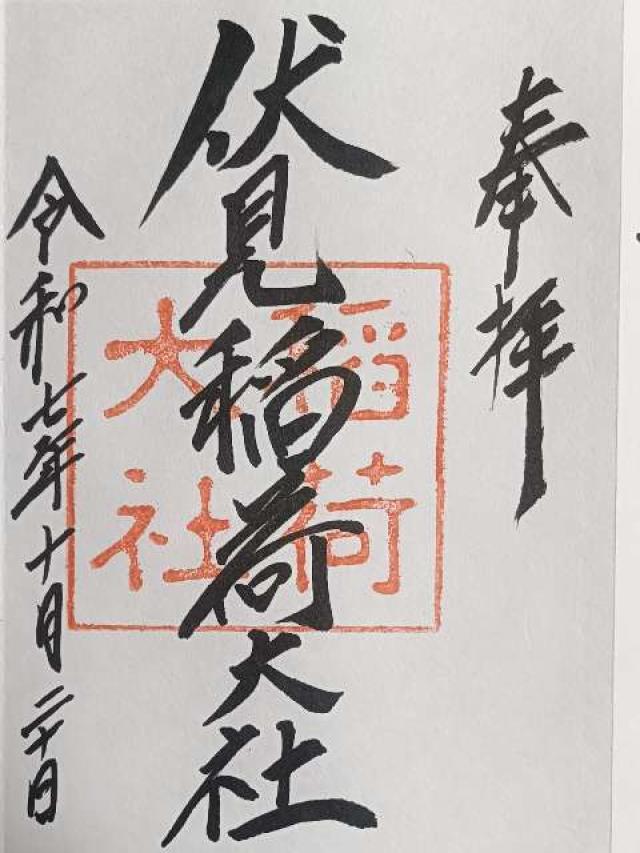 奉拝
伏見稲荷大社
稲荷
大社
令和七年十月二十日